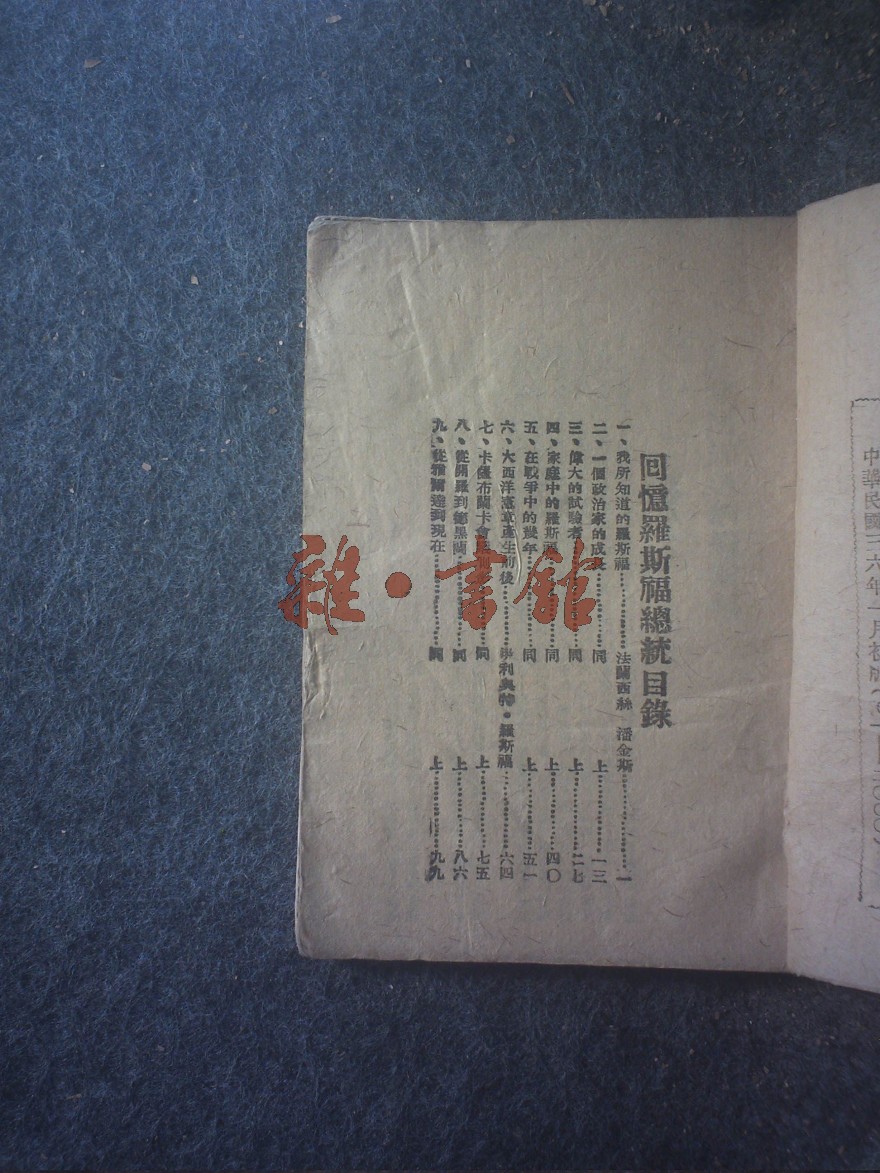 中華民國三六年一月初版
回憶羅斯福總統目錄
一、我所知道的羅斯福…………法蘭西絲 潘金斯…………一
二、一個政治家的成長…………同 上…………一三
三、偉大的試驗者…………同 上…………二七
四、家庭中的羅斯福…………同 上…………四〇
五、在戰爭中的幾年…………同 上…………五一
六、大西洋憲章產生前後…………伊利奧特·羅斯福…………六四
七、卡薩布蘭卡會 …………同 上…………七五
八、從開羅到德黑蘭…………同 上…………八六
九、從雅爾達到現在…………同 上…………九九
雜·書館